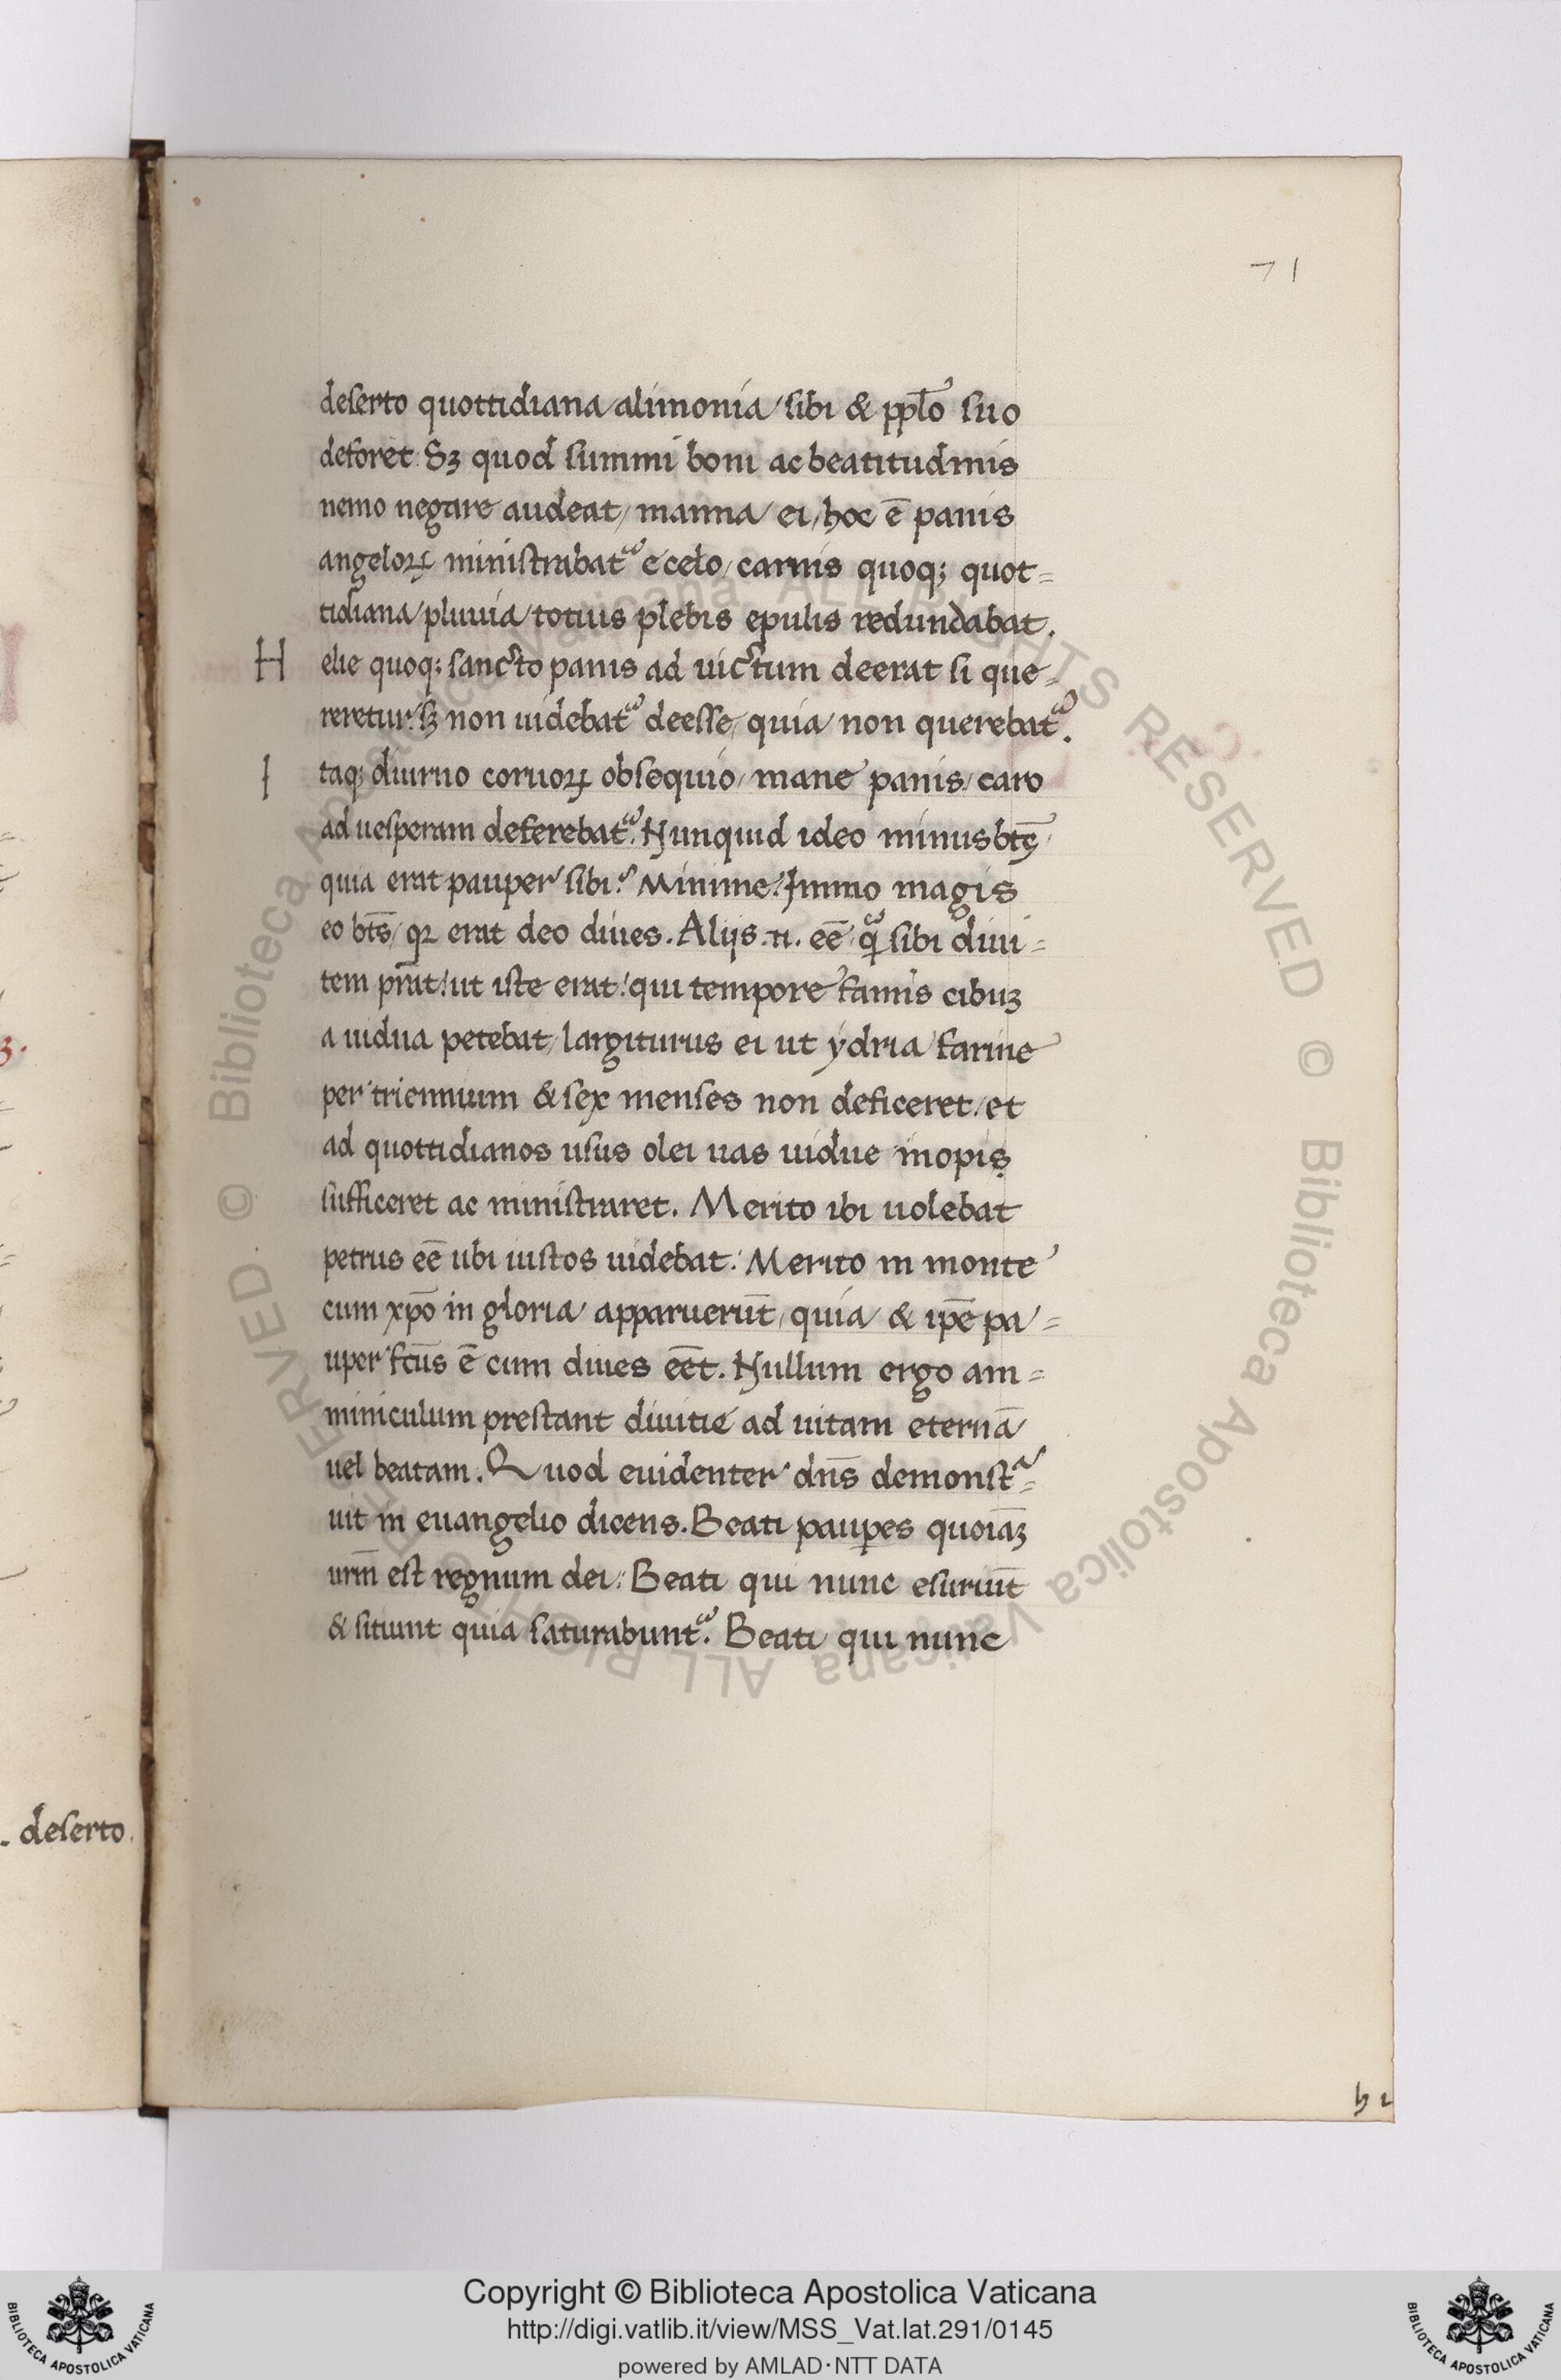 71
deserto quottidiana alimonia / sibi & pplo suo
deforet: Sꝫ quod summi boni ac beatitudinis
nemo negare audeat / manna ei / hoc ē panis
angeloꝝ ministrabat᷑ e celo / carnis quoqꝫ quot=
tidiana pluuia totius plebis epulis redundabat.
Helie quoqꝫ sancto panis ad uictum deerat si que=
reretur: sꝫ non uidebat᷑ deesse / quia non querebat᷑.
Itaqꝫ diurno coruoꝝ obsequio / mane panis / caro
ad uesperam deferebat᷑. Nunquid ideo minus btꝰ
quia erat pauper sibi? Minime: Immo magis
eo bts̄ / qꝛ erat deo diues. Aliis .n. eē q̄ sibi diui=
tem prāt: ut iste erat: qui tempore famis cibuꝫ
a uidua petebat / largiturus ei ut ydria farine
per triennium & sex menses non deficeret / et
ad quottidianos usus olei uas uidue inopis
sufficeret ac ministraret. Merito ibi uolebat
petrus eē ubi iustos uidebat: Merito in monte
cum xp̄o in gloria apparuerūt / quia & ip̄e pa=
uper fcūs ē cum diues eēt. Nullum ergo am=
miniculum prestant diuitie ad uitam eternā
uel beatam. Quod euidenter dn̄s demonstᵃ=
uit in euangelio dicens. Beati paup̲es quoiā̄ꝫ
urm̄ est regnum dei: Beati qui nunc esuriūt
& sitiunt quia saturabunt᷑. Beati qui nunc
. deserto.
h 1
© Biblioteca Apostolica Vaticana ALL RIGHTS RESERVED © Biblioteca Apostolica Vaticana ALL RIGHTS RESERVED
Copyright © Biblioteca Apostolica Vaticana
http://digi.vatlib.it/view/MSS_Vat.lat.291/0145
powered by AMLAD·NTT DATA
BIBLIOTECA APOSTOLICA VATICANA
BIBLIOTECA APOSTOLICA VATICANA